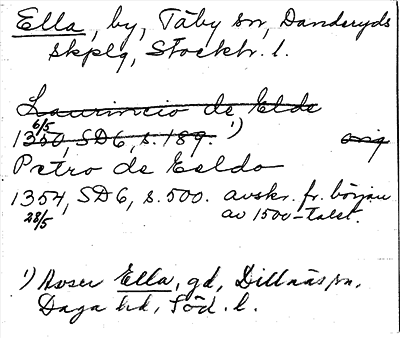 Ella, by, Täby sn, Danderyds
skplg, Stockh. l.
Laurincio de Elde
6/5
1350, SD6, s. 189. 1) orig
Petro de Eeldo
1354, SD6, s. 500. avskr. fr. början
28/5 av 1500-talet.
1) Avser Ella, gd, Dillnäs sn,
Daga hd, Söd. l.